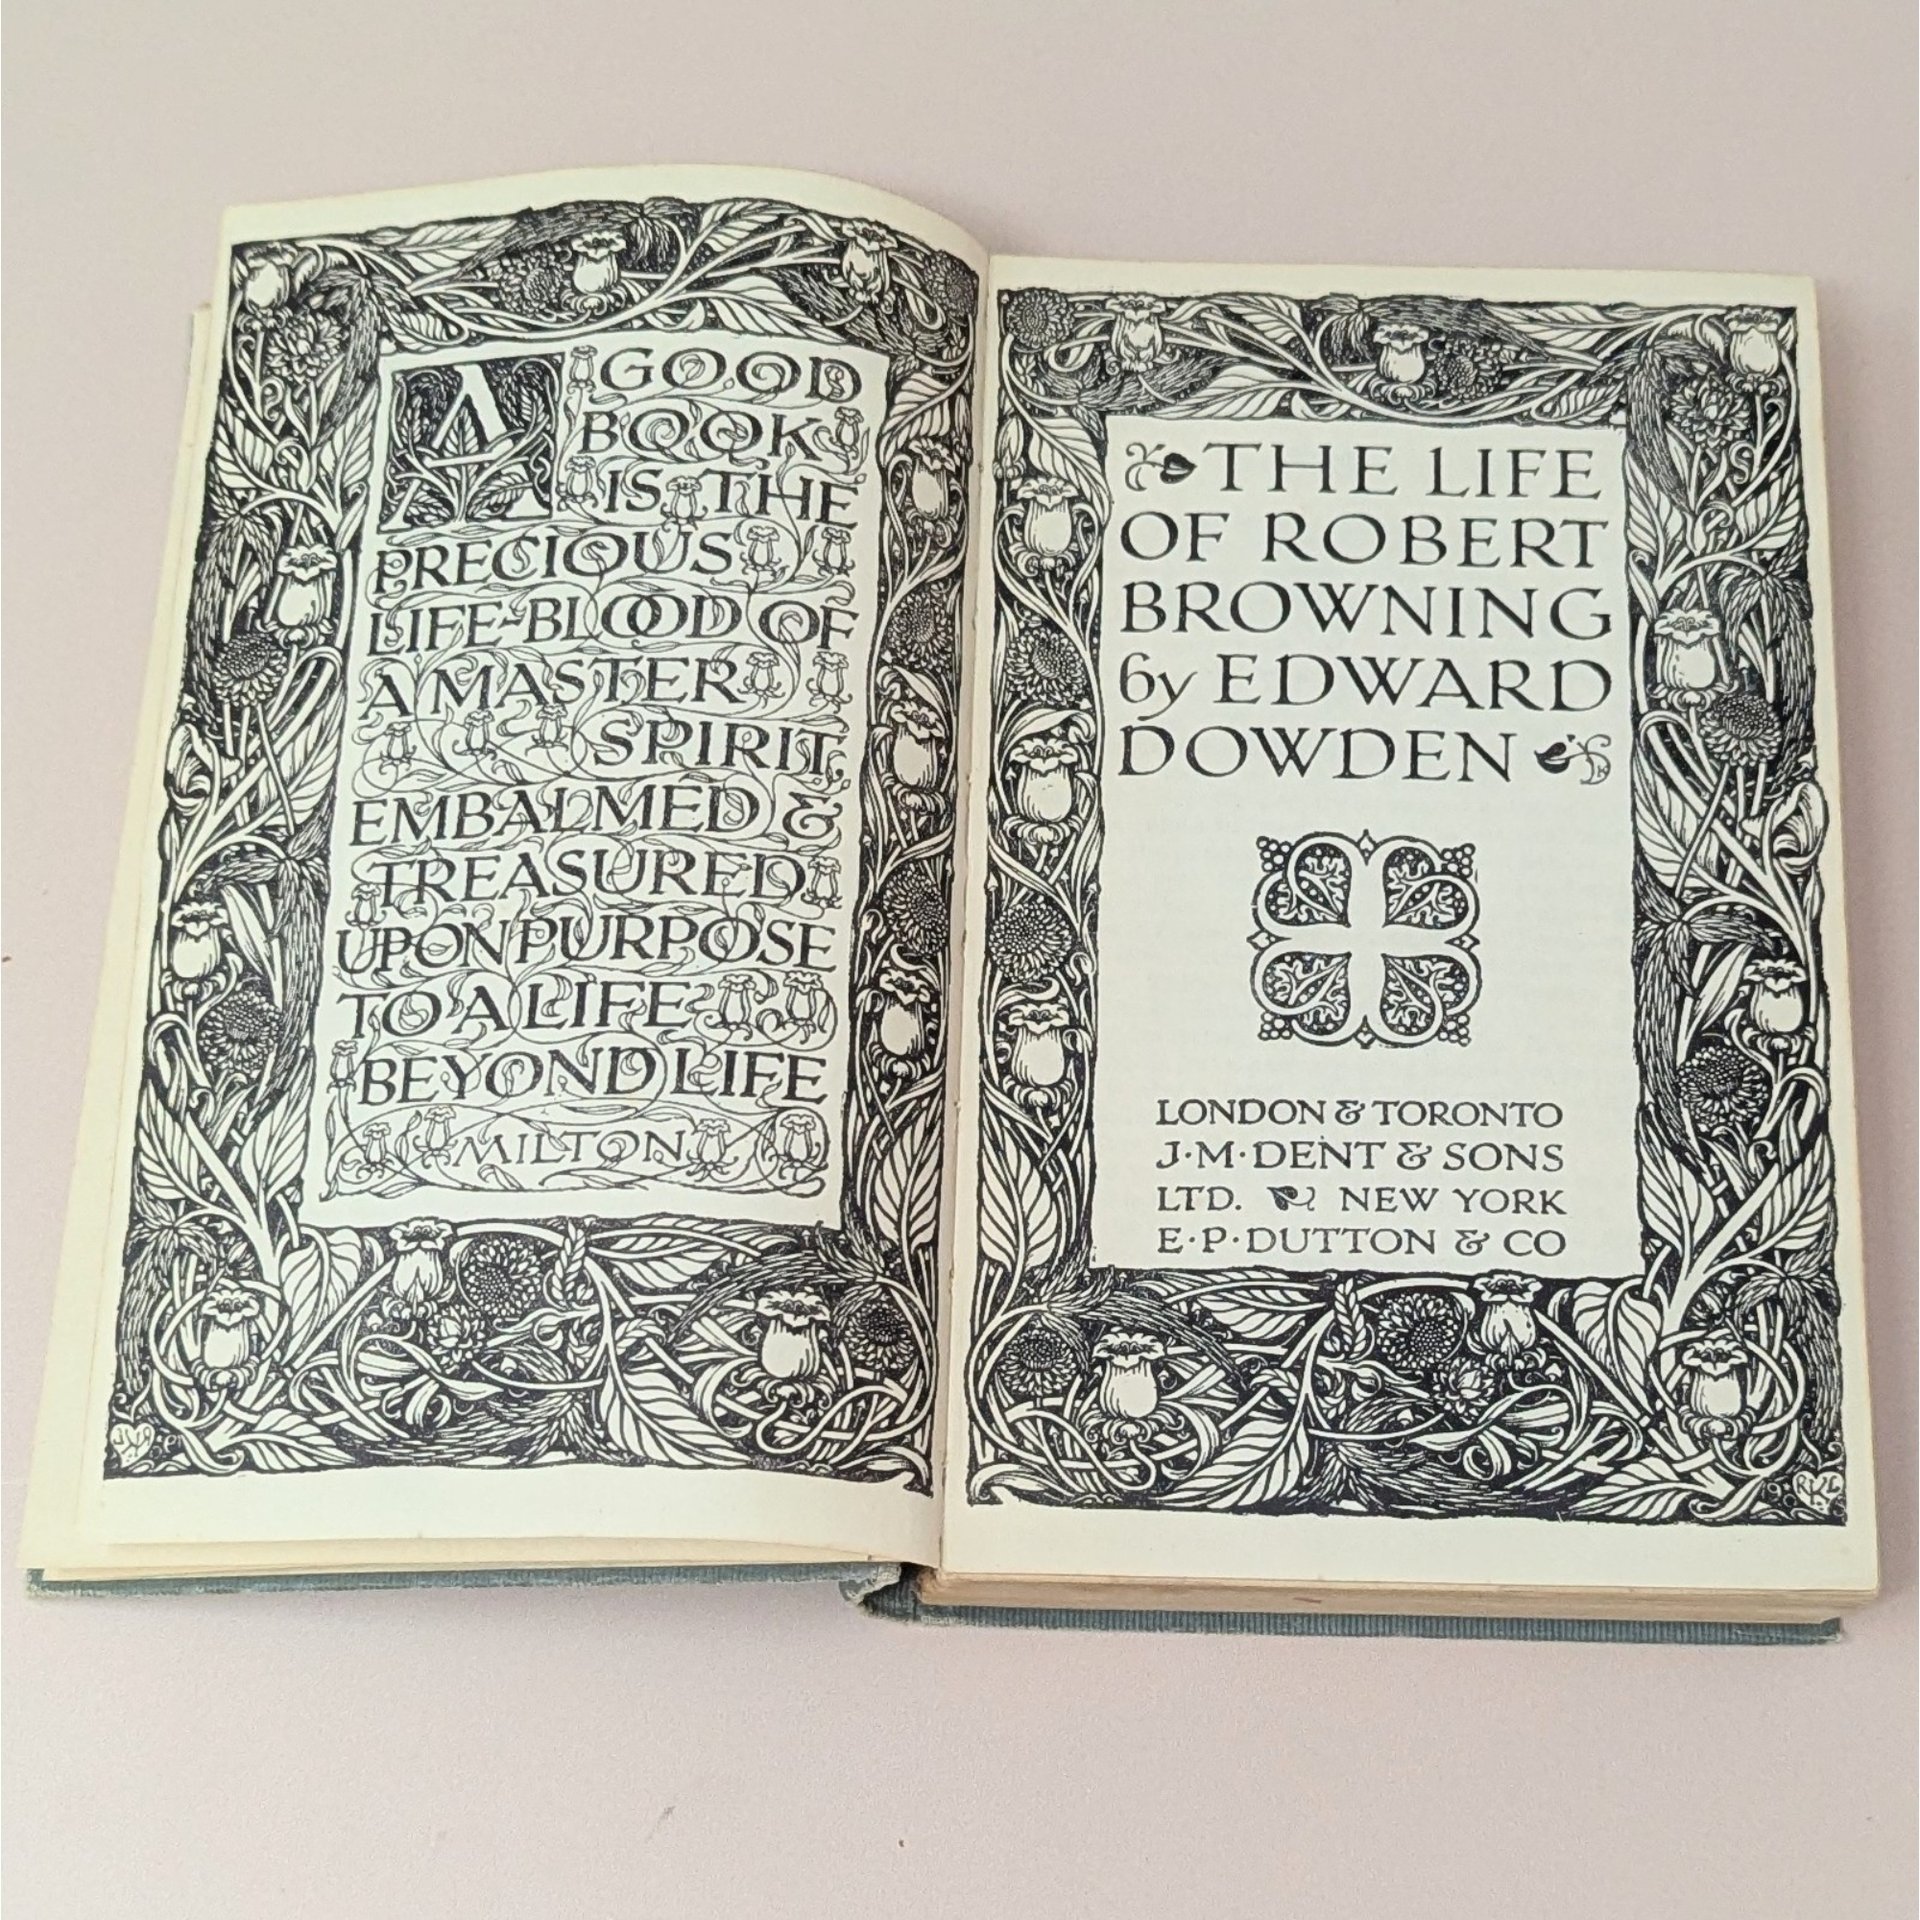 A GOOD
BOOK
IS THE
PRECIOUS
LIFE-BLOOD OF
A MASTER
SPIRIT,
EMBALMED &
TREASURED
UPON PURPOSE
TO A LIFE
BEYOND LIFE
MILTON
THE LIFE
OF ROBERT
BROWNING
by EDWARD
DOWDEN
LONDON & TORONTO
J·M·DENT & SONS
LTD. NEW YORK
E·P·DUTTON & CO
RKL